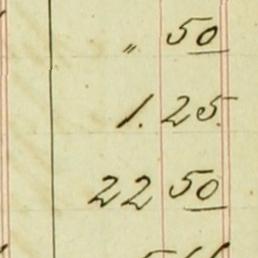 „ 50
1. 25
22 50